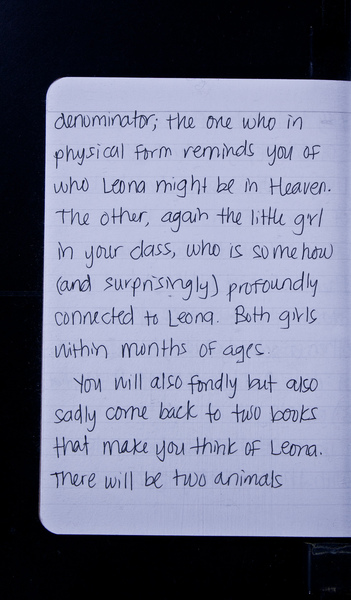 denuminator; the one who in
physical form reminds you of
who Leona might be in Heaven.
The other, again the little girl
in your class, who is somehow
(and surprisingly) profoundly
connected to Leona. Both girls
within months of ages.
You will also fondly but also
sadly come back to two books
that make you think of Leona.
There will be two animals